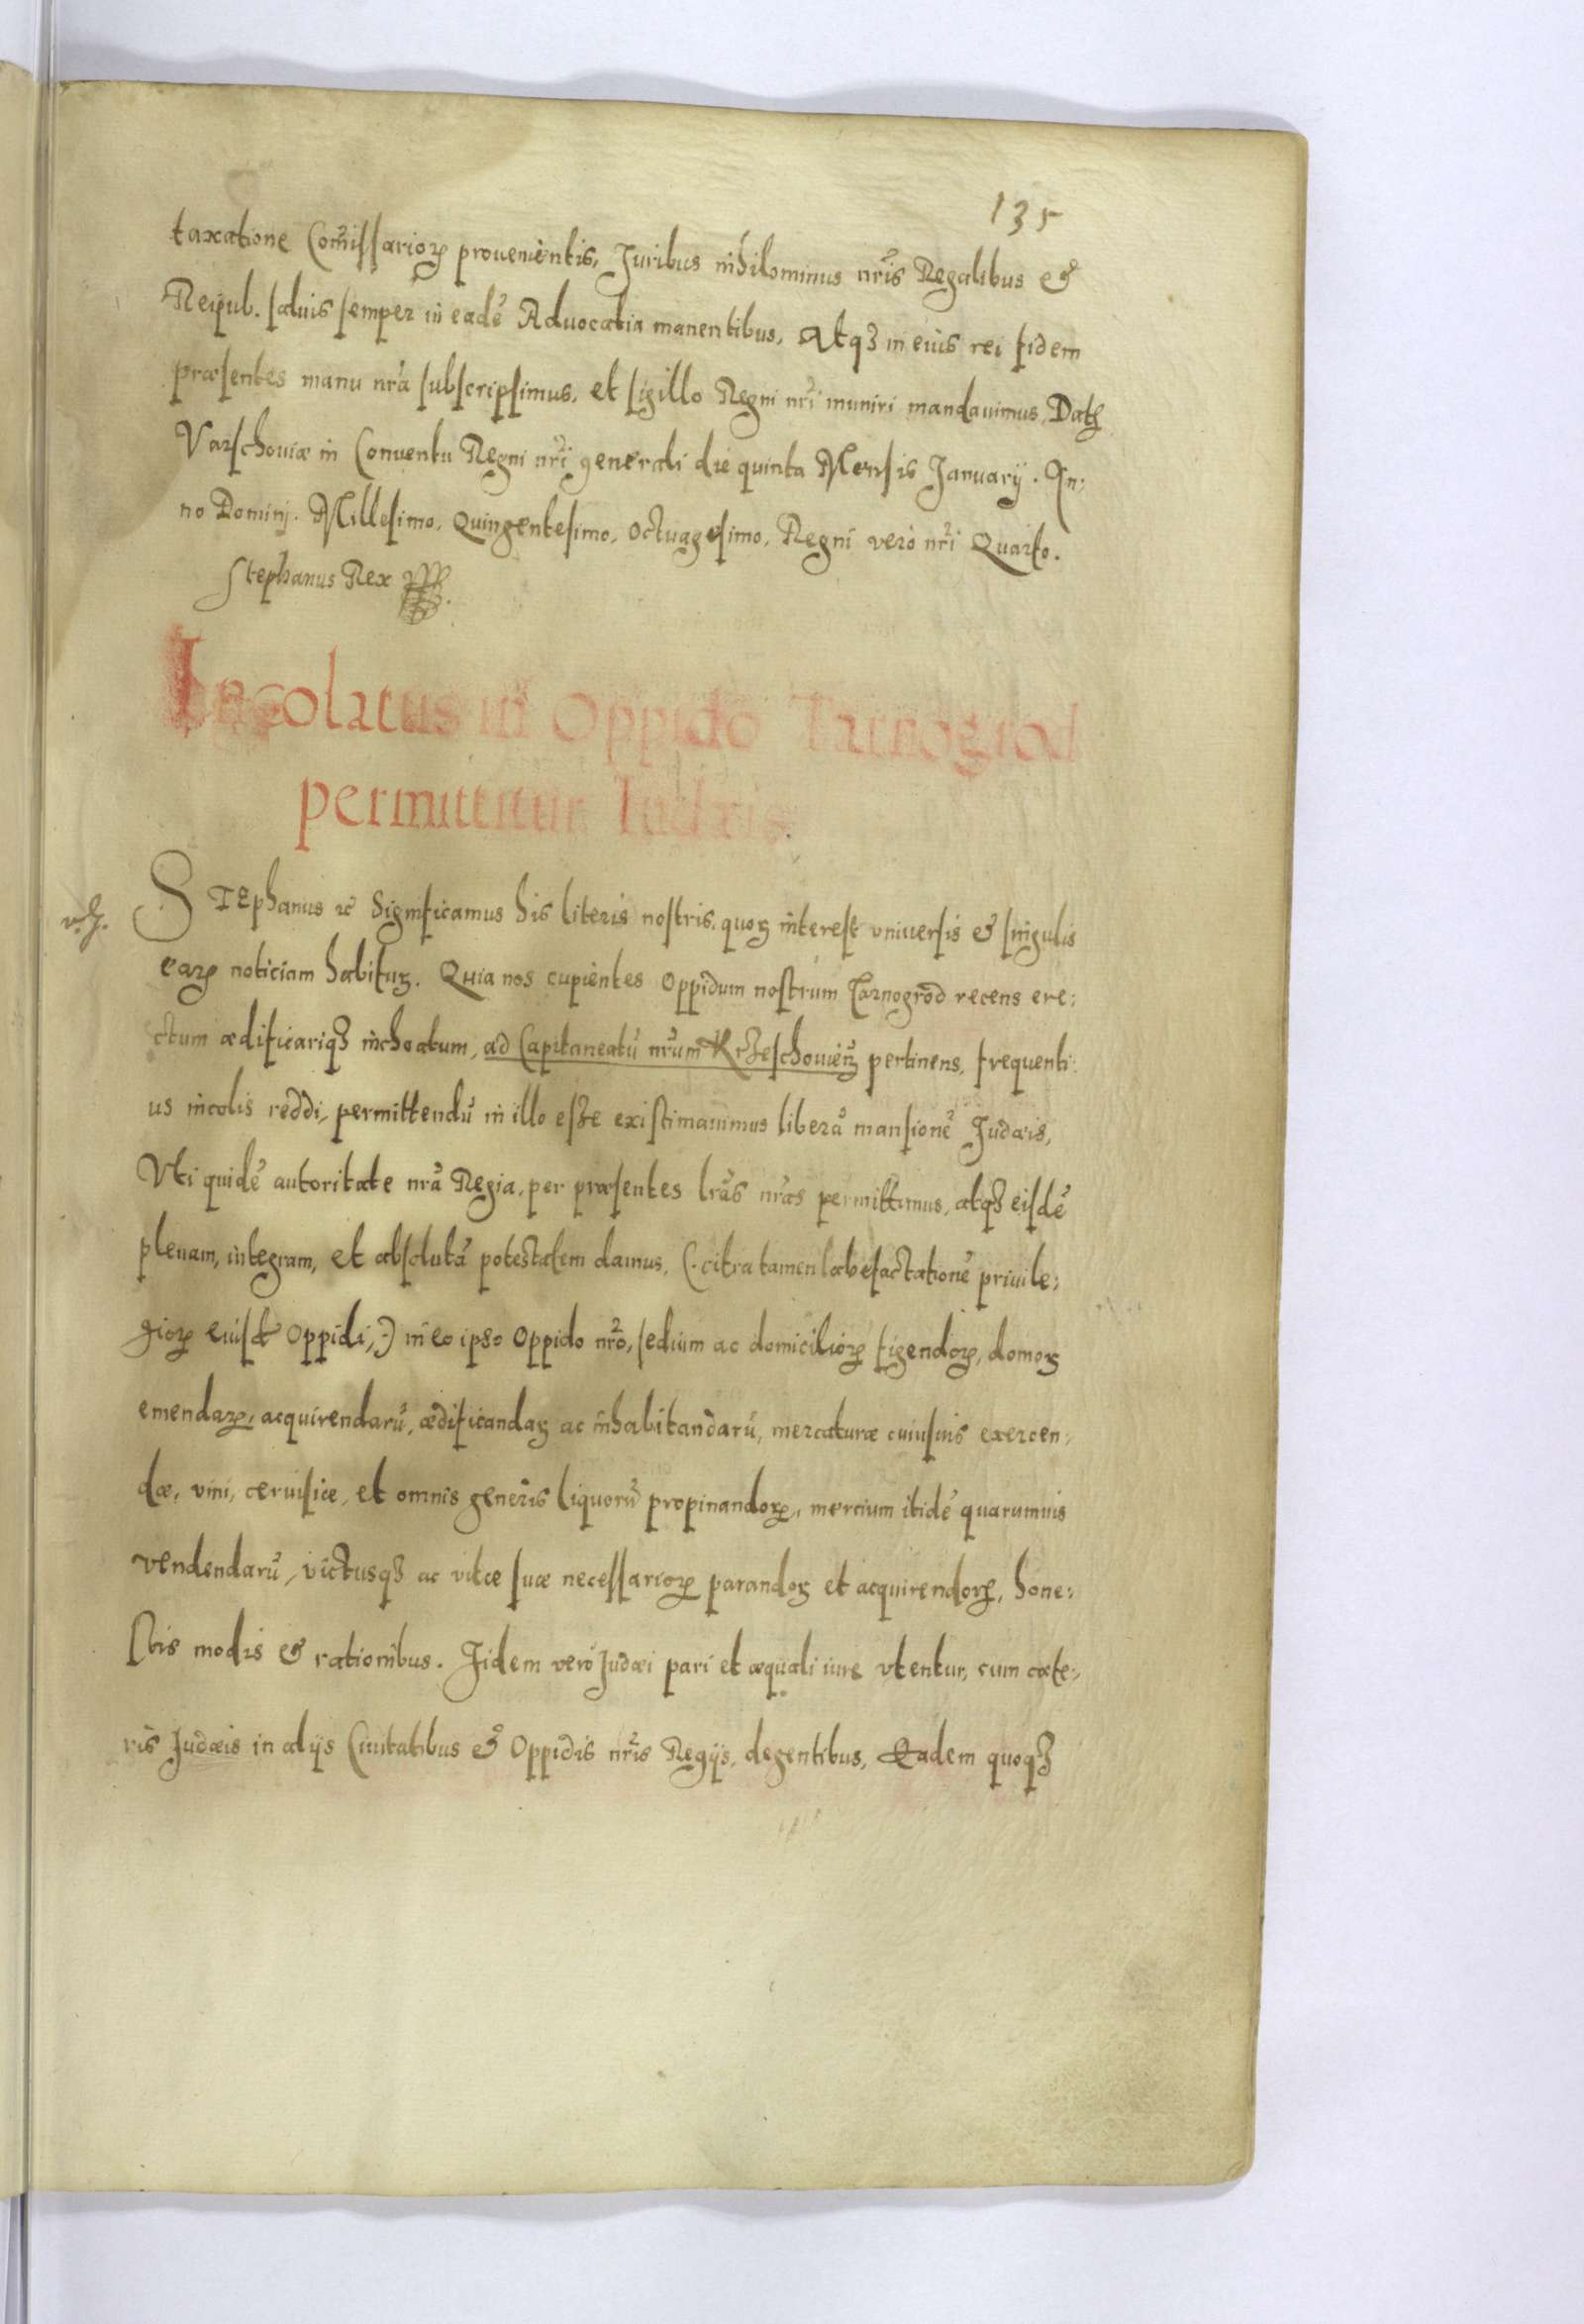 135
taxatione Com̃issarioꝝ prouenientis, Juribus nihilominus nr̃is Regalibus &
Reipub. saluis semper in eadẽ Aduocatia manentibus, Atqꝫ in eius rei fidem
præsentes manu nr̃a subscripsimus, et sigillo Regni nr̃i muniri mandauimus, Datꝫ
Varschouiæ in Conuentu Regni nr̃i generali die quinta Mensis Januarij. An:
no Dominj. Millesimo, Quingentesimo, Octuagesimo, Regni vero nr̃i Quarto.
Stephanus Rex
Incolatus in Oppido Tarnogrod
permittitur Iudæis.
STEphanus ꝛc̃ Significamus his literis nostris, quoꝝ interest vniuersis & singulis
earꝝ noticiam habituꝝ. Quia nos cupientes Oppidum nostrum Tarnogrod recens ere:
ctum ædificariqꝫ inchoatum, ad Capitaneatũ nr̃um Krzeschouieñ pertinens, frequenti:
us incolis reddi, permittendũ in illo esse existimauimus liberã mansionẽ Judæis,
Vti quidẽ autoritate nr̃a Regia, per præsentes lr̃as nr̃as permittimus, atqꝫ eisdẽ
plenam, integram, et absolutã potestatem damus, (. citra tamen labefactationẽ priuile:
gioꝝ eiusd̃ Oppidi,.) in eo ipso Oppido nr̃o, sedium ac domicilioꝝ figendoꝝ, domoꝝ
emendaꝝ, acquirendarũ, ædificandaꝝ ac inhabitandarũ, mercaturæ cuiusuis exercen:
dæ, vini, ceruisiæ, et omnis generis liquorũ propinandoꝝ, mercium itidẽ quarumuis
vendendarũ, victusqꝫ ac vitæ suæ necessarioꝝ parandoꝝ et acquirendoꝝ, hone:
stis modis & rationibus. Jidem vero Judæi pari et æquali iure vtentur, cum cæte:
ris Judæis in alijs Ciuitatibus & Oppidis nr̃is Regijs, degentibus, Eadem quoqꝫ